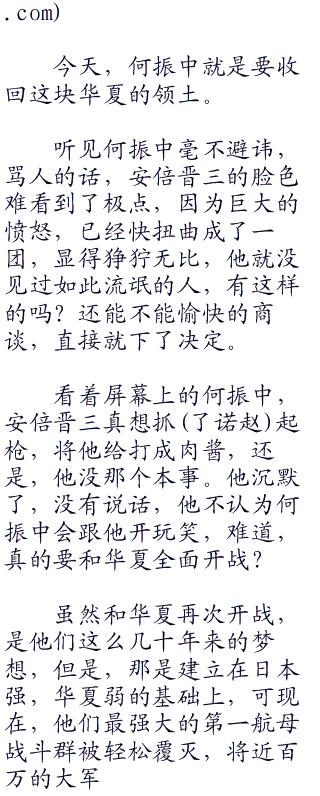 .com)
今天，何振中就是要收
回这块华夏的领土。
听见何振中毫不避讳，
骂人的话，安倍晋三的脸色
难看到了极点，因为巨大的
愤怒，已经快扭曲成了一
团，显得狰狞无比，他就没
见过如此流氓的人，有这样
的吗？还能不能愉快的商
谈，直接就下了决定。
看着屏幕上的何振中，
安倍晋三真想抓(了诺赵)起
枪，将他给打成肉酱，还
是，他没那个本事。他沉默
了，没有说话，他不认为何
振中会跟他开玩笑，难道，
真的要和华夏全面开战？
虽然和华夏再次开战，
是他们这么几十年来的梦
想，但是，那是建立在日本
强，华夏弱的基础上，可现
在，他们最强大的第一航母
战斗群被轻松覆灭，将近百
万的大军